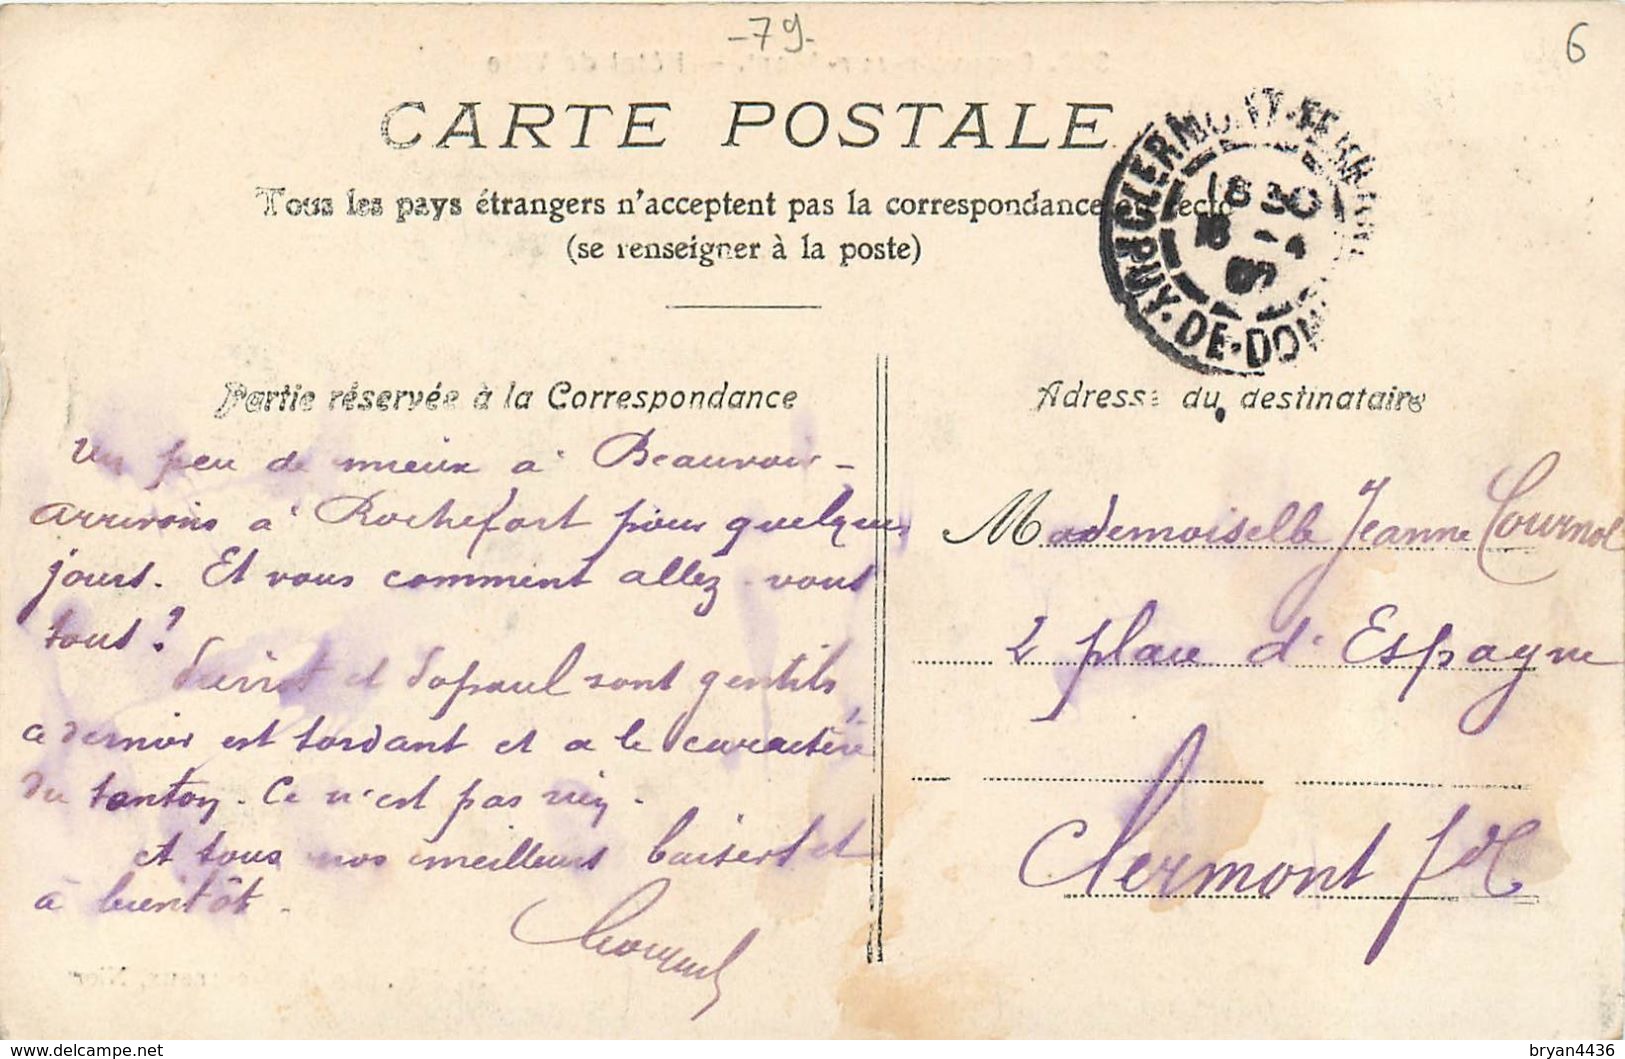 -79-
6
CARTE POSTALE
Tous les pays étrangers n'acceptent pas la correspondance au recto
(se renseigner à la poste)
CLERMONT-FERRAND
PUY-DE-DOME
18 30
Partie réservée à la Correspondance
Un peu de mieux à Beauvoir -
arrivons à Rochefort pour quelques
jours. Et vous comment allez-vous
tous ?
et sont gentils
ce dernier est tordant et a le caractère
du tonton. Ce n'est pas rien.
et tous nos meilleurs baisers et
à bientôt.
Adresse du destinataire
Mademoiselle Jeanne Cournol
2 place d'Espagne
Clermont fd
bryan4436